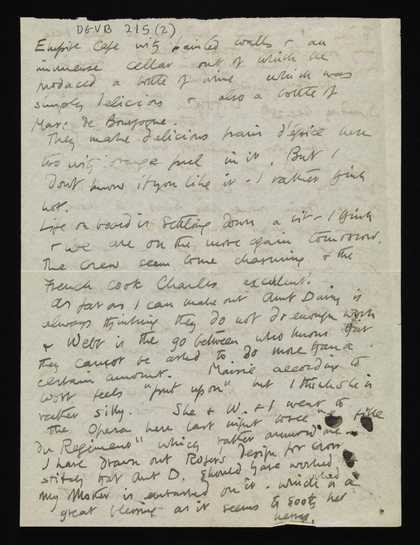 DGVB 215 (2)
Empire Cafe with painted walls & an
immense cellar out of which he
produced a bottle of wine which was
simply delicious & also a bottle of
Marc de Bourgogne.
They make delicious pain d'épice here
too with orange peel in it. But I
Don't know if you like it - I rather think
not.
Life on board is settling down a bit - I think
& we are on the move again tomorrow.
The crew seem some charming & the
French cook Charles excellent.
As far as I can make out Aunt Daisy is
always thinking they do not do enough work
& West is the go between who knows that
they cannot be asked to do more than a
certain amount. according to
West feels "put upon" but I think she is
rather silly. She & W. & I went to
the Opera here last night "
du Regiment" which rather amused me -
I have drawn out Rogers design for cross
stitch that Aunt D. should have worked
my Mother is embarked on it - which is a
great blessing as it seems to soothe her
nerves.